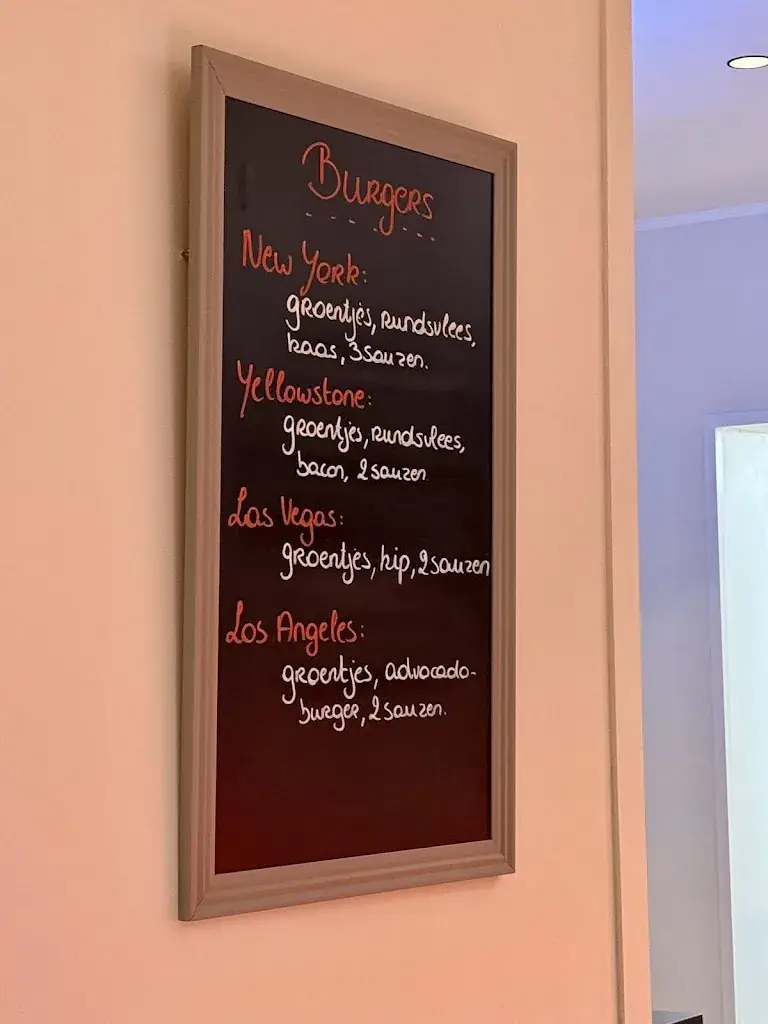 Burgers
New York:
groentjes, rundsvlees,
kaas, 3 sauzen.
Yellowstone:
groentjes, rundsvlees,
bacon, 2 sauzen
Las Vegas:
groentjes, kip, 2 sauzen
Los Angeles:
groentjes, advocado-
burger, 2 sauzen.